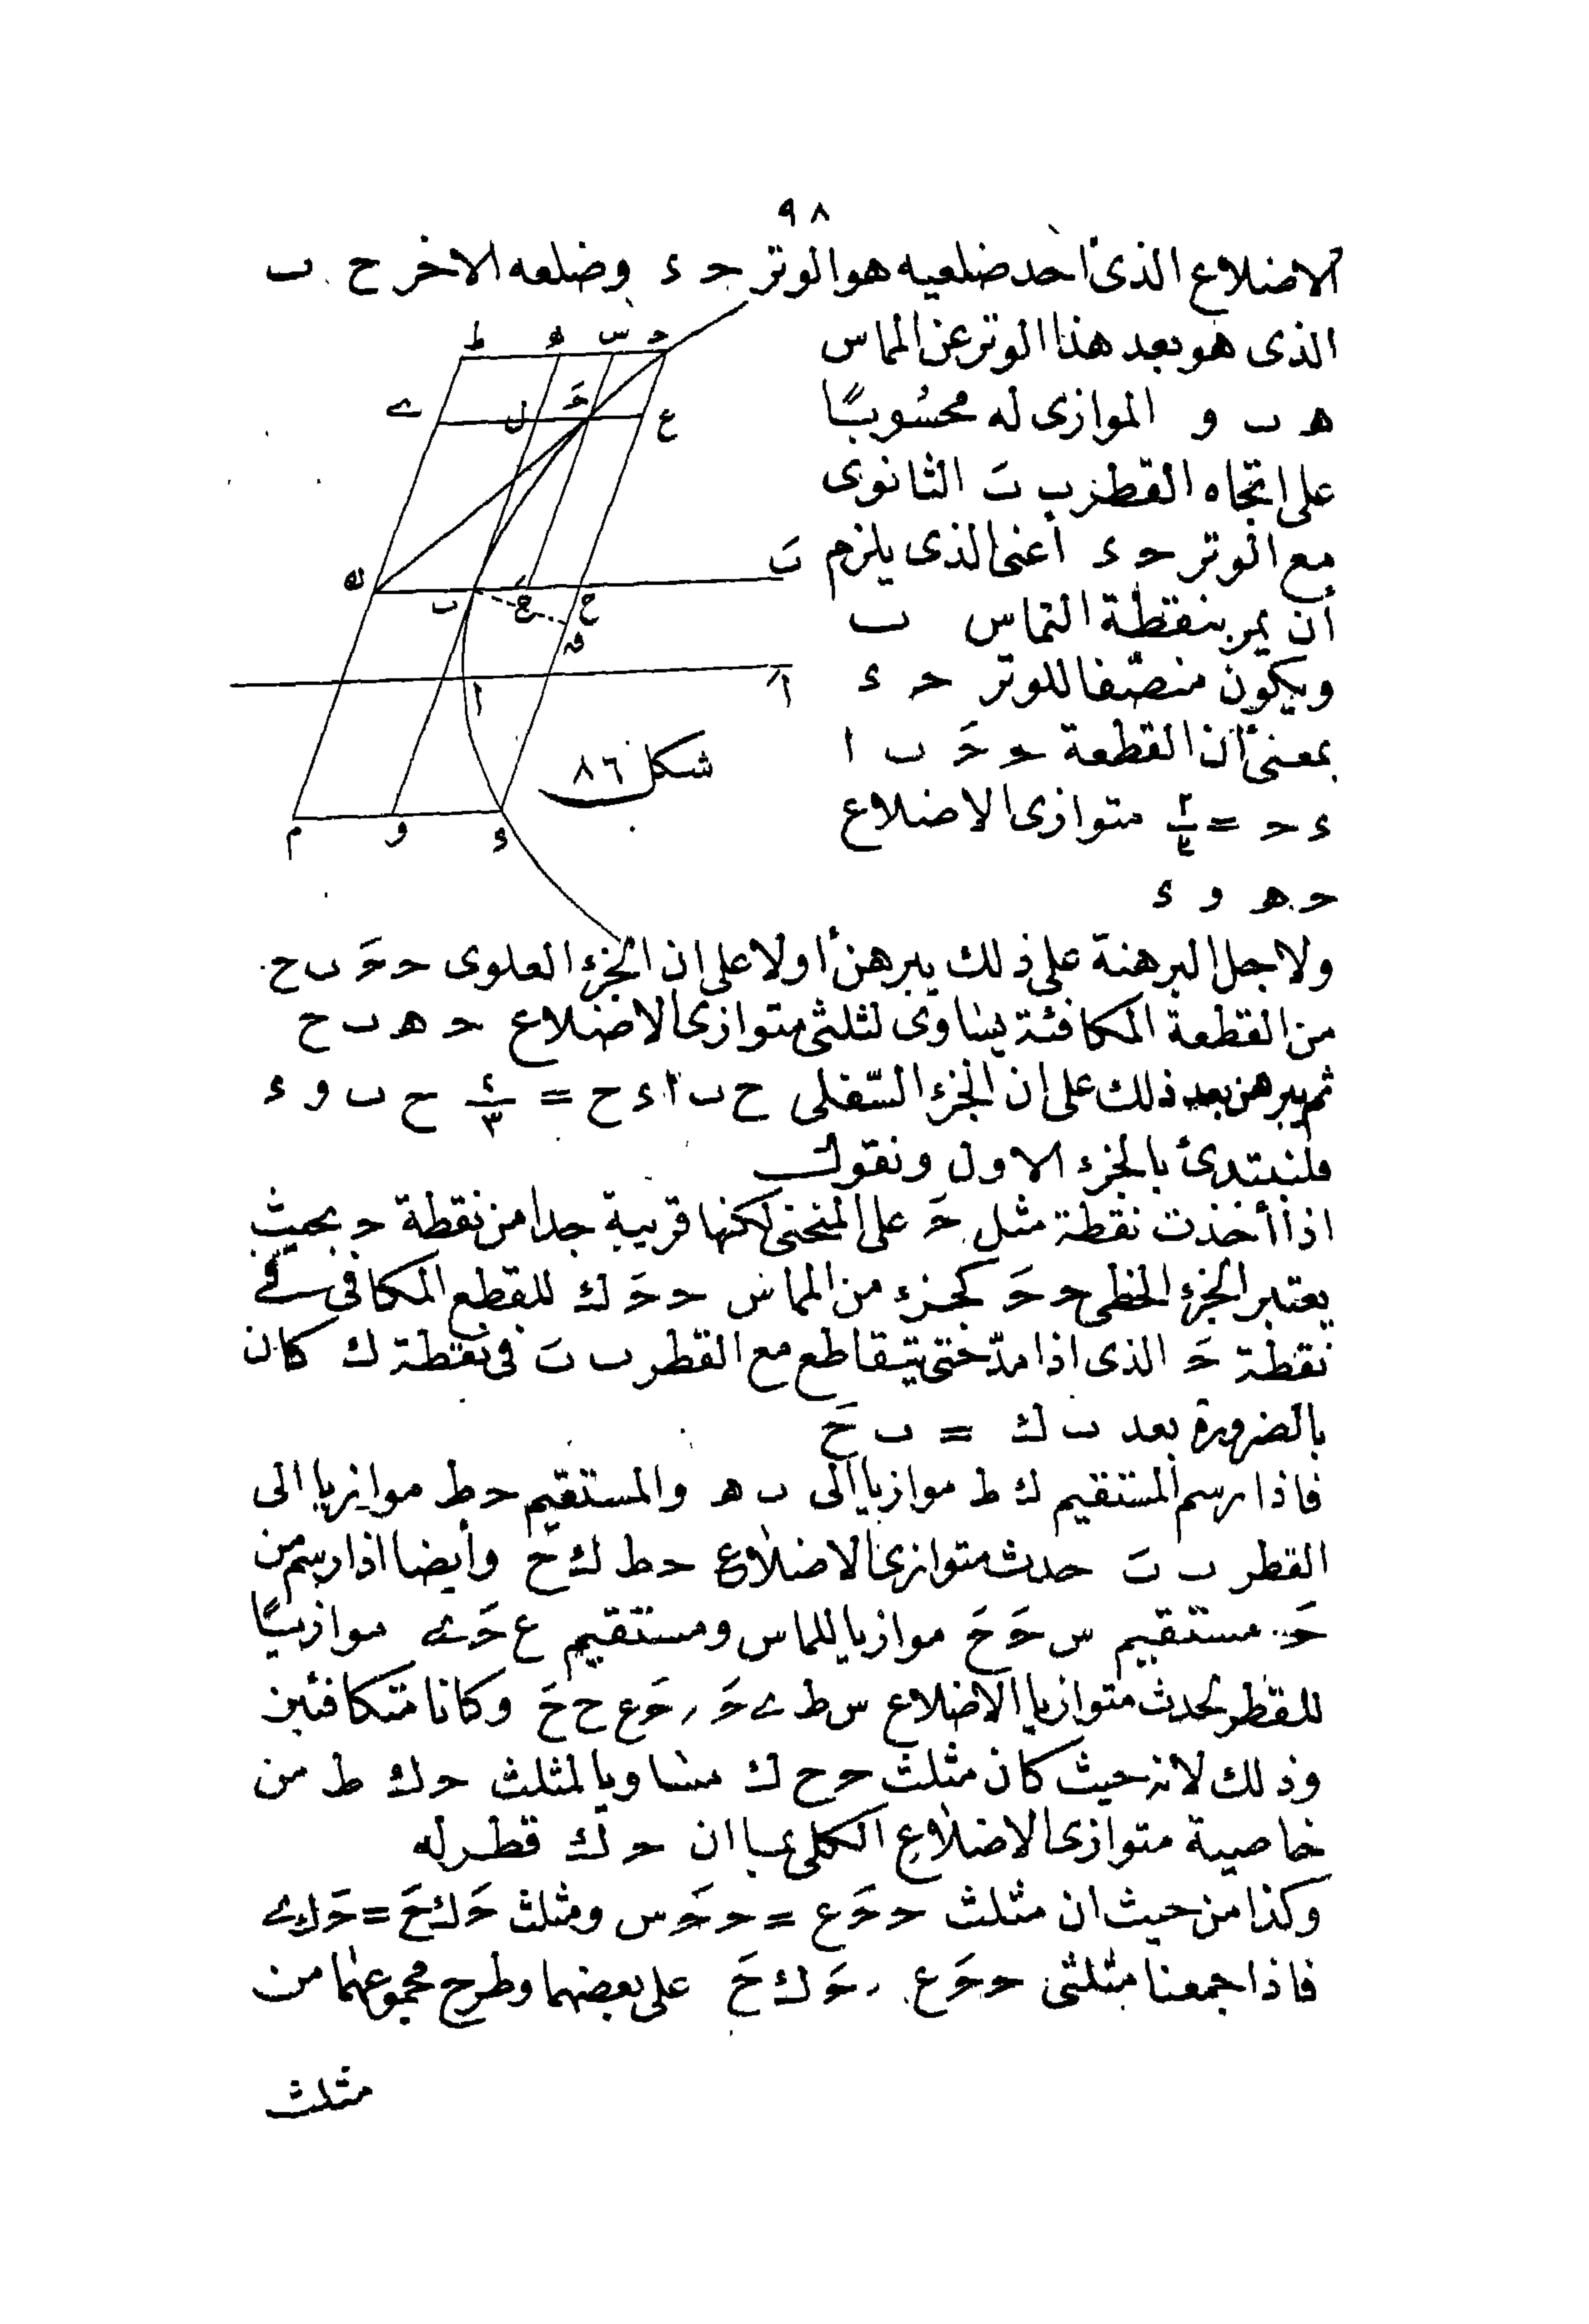 ٩٨
الاضلاع الذى أحد ضلعيه هو الوتر حـ ء وضلعه الاخر ح ب
الذى هو بعد هذا الوتر عن المماس
هـ ب و الموازى له محسوبًا
على اتجاه القطر ب بَ الثانوى
مع الوتر حـ ء أعنى الذى يلزم
أن يمر بنقطة التماس ب
ويكون منصّفا للوتر حـ ء
بمعنى أن القطعة حـ حـَ ب ا
ء حـ = متوازى الاضلاع
حـ هـ و ء
ط هـ س حـ
ے ل حـَ ع
ك ب حَ ح بَ
ا اَ
م و ء
شكل ٨٦
ولاجل البرهنة على ذلك يبرهن أولا على ان الجزء العلوى حـ حـَ ب ح
من القطعة المكافئة يساوى لثلثى متوازى الاضلاع حـ هـ ب ح
ثم يبرهن بعد ذلك على ان الجزء السّفلى ح ب ا ء ح = ٢/٣ ح ب و ء
فلنبتدئ بالجزء الاول ونقول
اذا أخذت نقطة مثل حـَ على المنحنى لكنها قريبة جدا من نقطة حـ بحيث
يعتبر الجزء الخطى حـ حـَ كجزء من المماس حـ حـَ ك للقطع المكافى فى
نقطة حـَ الذى اذا مدّ حتى يتقاطع مع القطر ب بَ فى نقطة ك كان
بالضرورة بعد ب ك = ب حَ
فاذا رسم المستقيم ك ط موازيا الى ب هـ والمستقيم حـ ط موازيا الى
القطر ب بَ حدث متوازى الاضلاع حـ ط ك ح وأيضا اذا رسم من
حـَ مستقيم س حـَ حَ موازيا للمماس ومستقيم ع حـَ ے موازيًا
للقطر لحدث متوازيا الاضلاع س ط ے حـَ ر حـَ ع ح حَ وكانا متكافئين
وذلك لانه حيث كان مثلث حـ ح ك مساويا لمثلث حـ ك ط من
خاصية متوازى الاضلاع الكلى بما ان حـ ك قطر له
وكذا من حيث ان مثلث حـ حـَ ع = حـ حـَ س ومثلث حـَ ك حَ = حـَ ك ے
فاذا جمعنا مثلثى حـ حـَ ع ر حـَ ك حَ على بعضهما وطرح مجموعهما من
مثلث